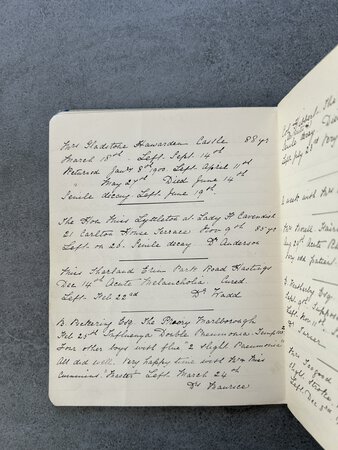 Mrs Gladstone Hawarden Castle 88 yrs
March 18th Left Sept. 14th
Returned Jany 8th 1900 Left April 11th
" May 27th Died June 14th
Senile decay Left June 19th.
The Hon Miss Lyttleton at Lady F Cavendish
21 Carlton House Terrace Nov 9th 85 yrs
Left on 26. Senile decay Dr Anderson
Miss Sharland Park Road Hastings
Dec 14th Acute Melancholia Cured
Left Feb 22nd Dr
B. Pickering Esq The Priory Marlborough
Feb 25th Influenza Double Pneumonia
Four other boys with flue "2 Slight Pneumonia"
All did well. Very happy time with Mr & Miss
"Master" Left March 24th
Dr Maurice
The
decay
Left
I week with Mrs
Mrs
Acute
patient
Esq
Left Nov 11th
Dr
Mrs
stroke
Left Dec